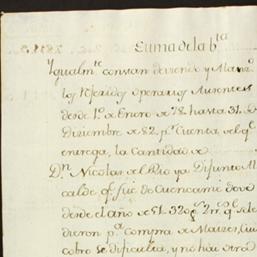 Suma de la bta
Igualmte constan deviendo y Manil
los referidos operarios Ausentes
desde 1o de Enero de 78 hasta 31 de
Diziembre de 82 pr Cuenta
entrega, la Cantidad de
Dn Nicolas de ya Difunto Al
calde qe fue de Cuencamé
desde el año de 81. 320 ps 2 rs qe se le
dieron pa Compra de Maizes, cuio
cobro se dificulta, y no hai otra